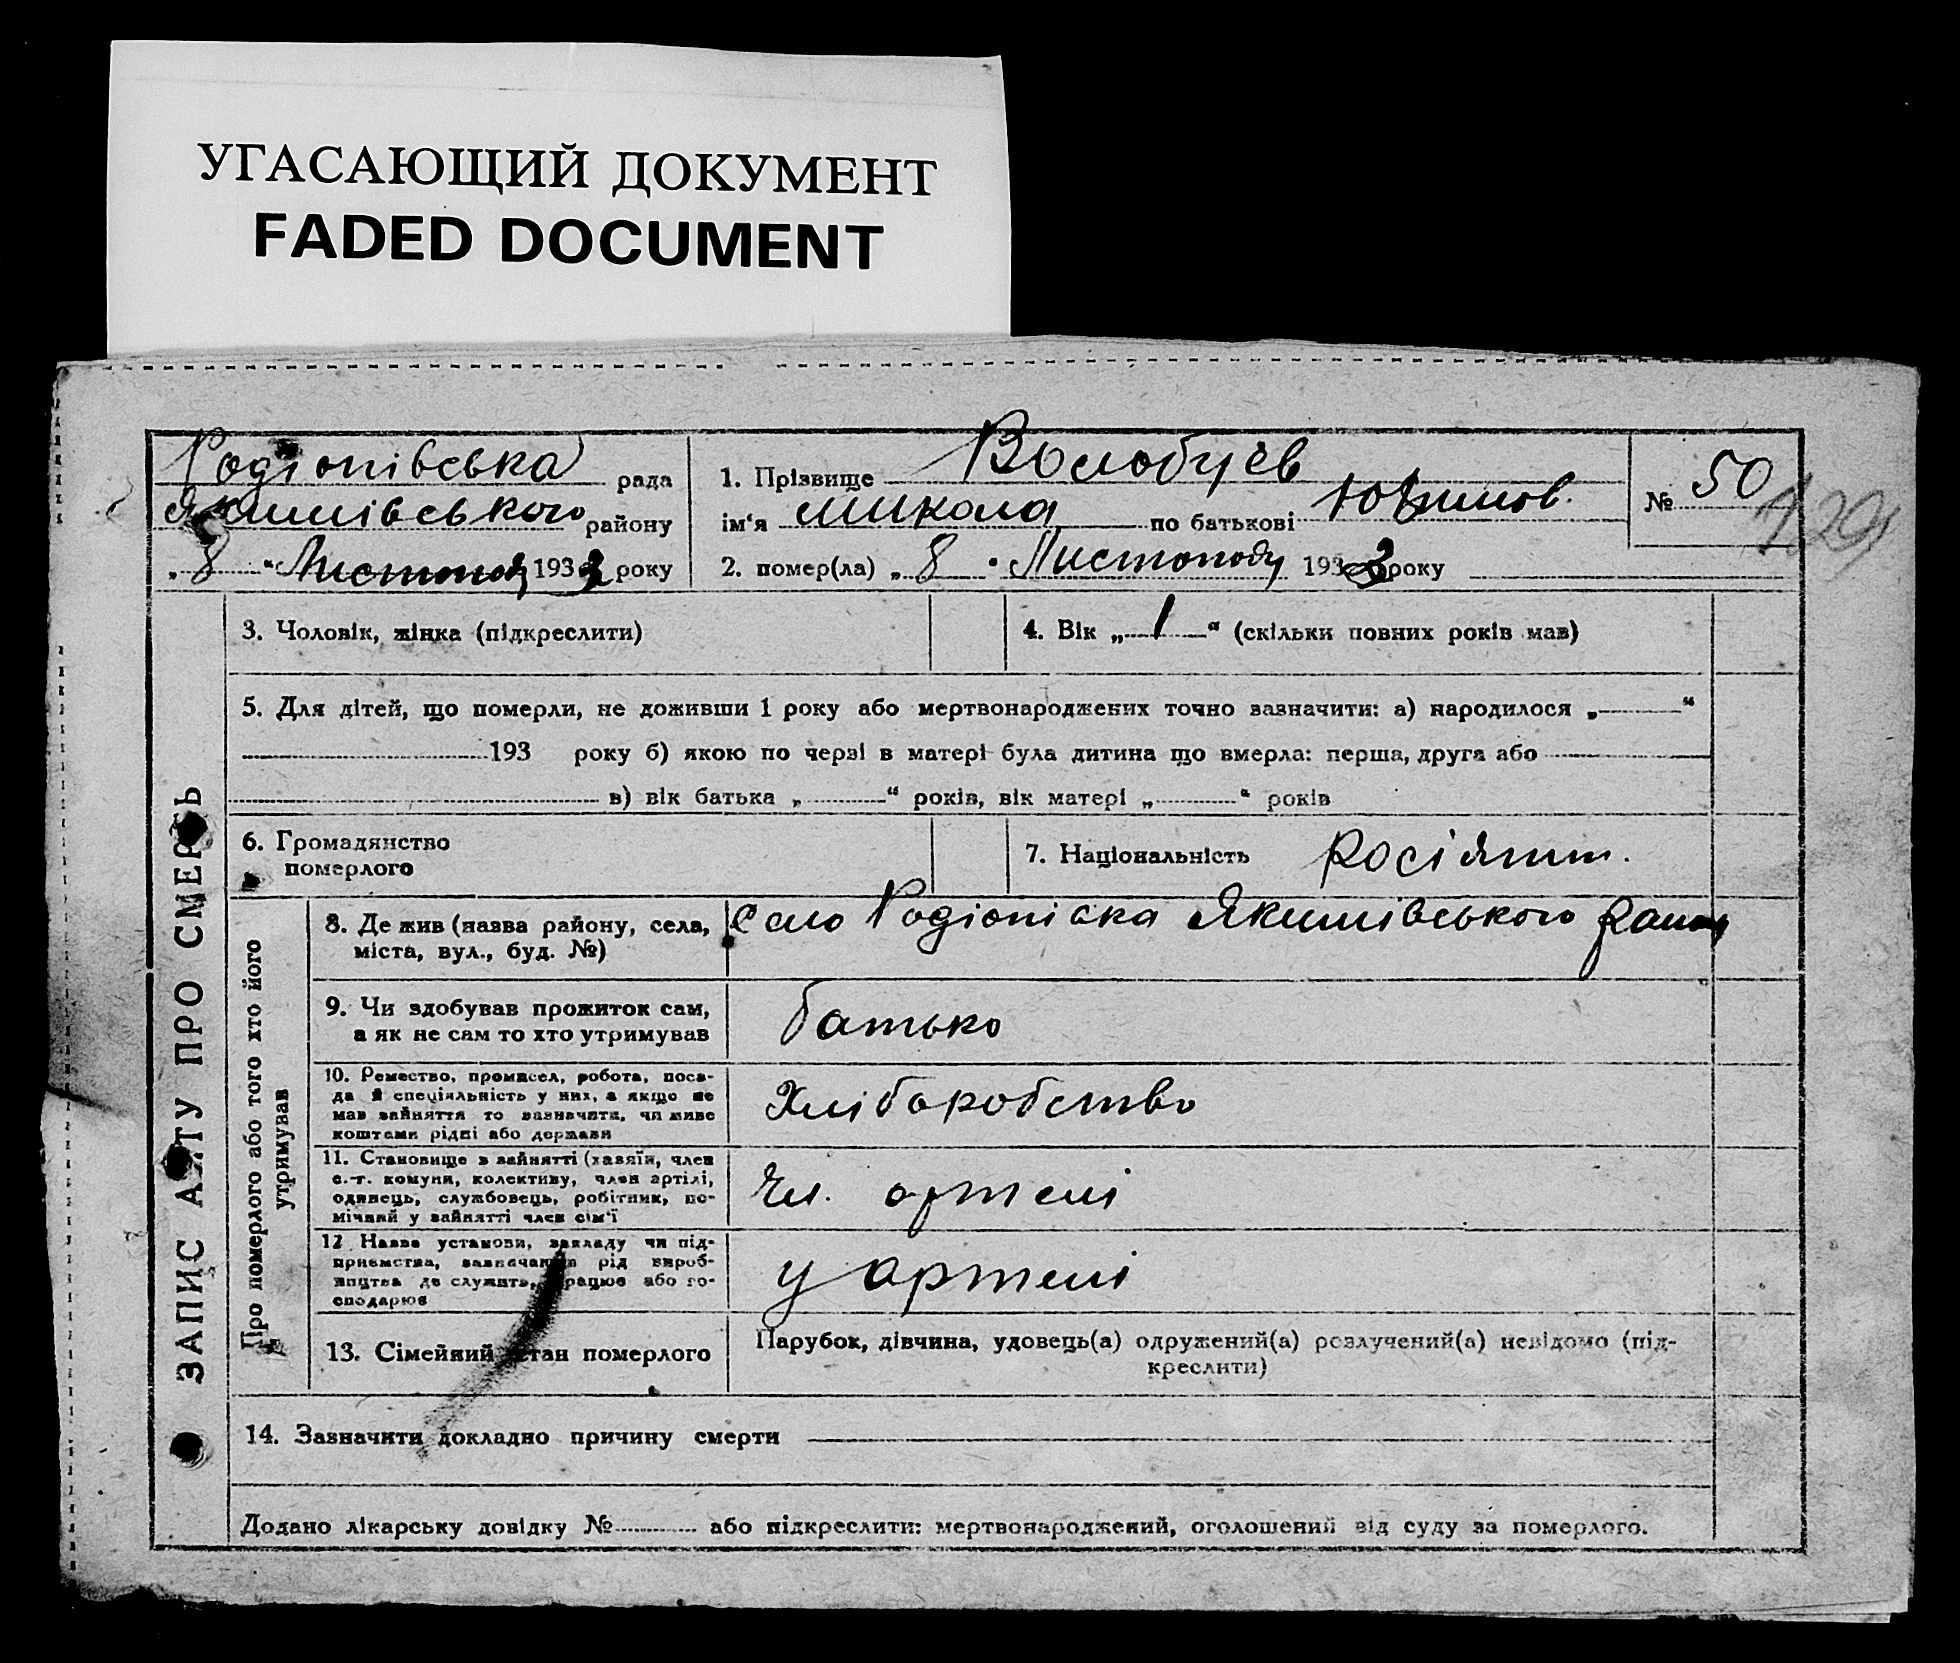 УГАСАЮЩИЙ ДОКУМЕНТ
FADED DOCUMENT
Родіонівська рада
Якимівського району
„8“ Листоподу 1933 року
1. Прізвище Волобуєв
ім'я Микола по батькові Юхимов.
2. помер(ла) „8“ Листоподу 1933 року
№ 50
129
ЗАПИС АКТУ ПРО СМЕРТЬ
3. Чоловік, жінка (підкреслити)
4. Вік „1“ (скільки повних років мав)
5. Для дітей, що померли, не доживши 1 року або мертвонароджених точно зазначити: а) народилося „ “
193 року б) якою по черзі в матері була дитина що вмерла: перша, друга або
в) вік батька „ “ років, вік матері „ “ років
6. Громадянство
померлого
7. Національність росіянин.
Про померлого або того хто його
утримував
8. Де жив (назва району, села,
міста, вул., буд. №)
Село Родіонівка Якимівського району
9. Чи здобував прожиток сам,
а як не сам то хто утримував
батько
10. Ремество, промисел, робота, поса-
да й спеціяльність у них, а якщо не
мав зайняття то зазначити, чи живе
коштами рідні або держави
Хліборобство
11. Становище в зайнятті (хазяїн, член
с.-г. комуни, колективу, член артілі,
одинець, службовець, робітник, по-
мічний у зайнятті член сім'ї
Чл. артелі
12 Назва установи, закладу чи під-
приємства, зазначаючи рід вироб-
ництва де служить, працює або го-
сподарює
у артелі
13. Сімейний стан померлого
Парубок, дівчина, удовець(а) одружений(а) розлучений(а) невідомо (під-
креслити)
14. Зазначити докладно причину смерти
Додано лікарську довідку № або підкреслити: мертвонароджений, оголошений від суду за померлого.